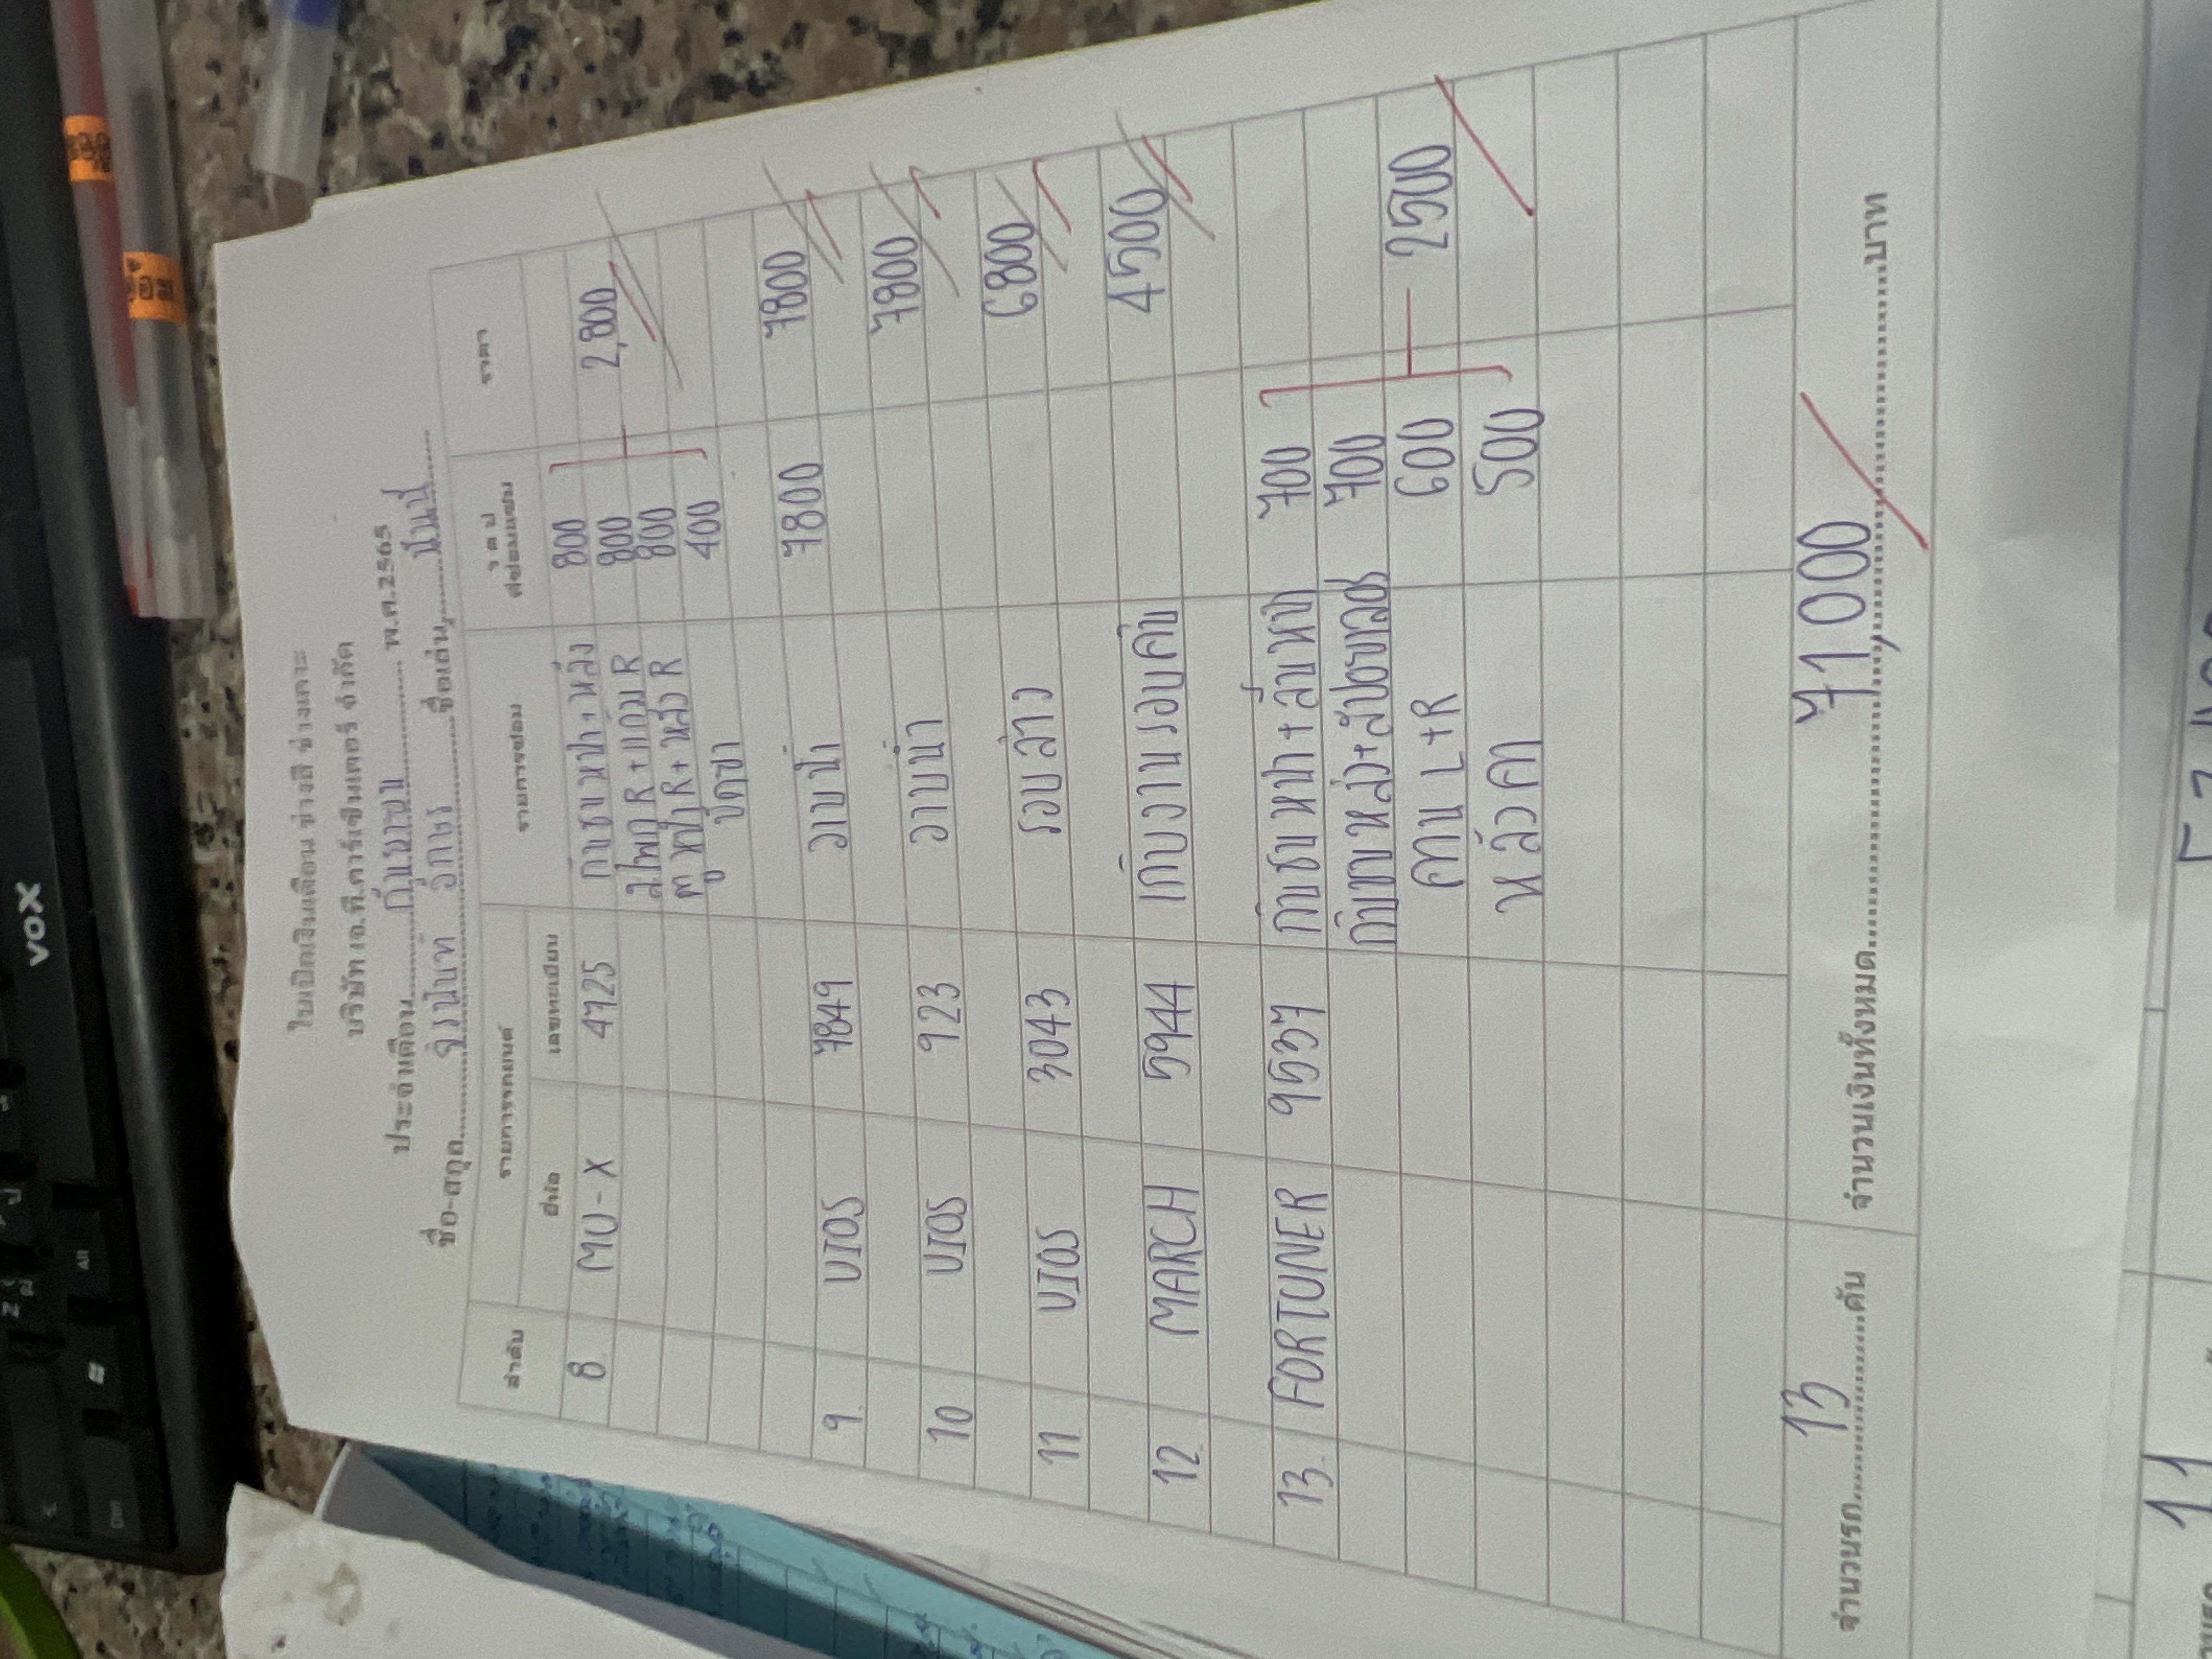 ใบเบิกเงินเดือน ช่างสี ช่างเคาะ
บริษัท เอ.ที.คาร์เซ็นเตอร์ จำกัด
ประจำเดือน กันยายน พ.ศ.2565
ชื่อ-สกุล จิรนันท์ อักษร ชื่อเล่น
ลำดับ รายการรถยนต์ รายการซ่อม ราคา
ยี่ห้อ เลขทะเบียน
8 MU-X 4725 กันชนหน้า+หลัง 800 2,800
R+แก้ม R 800
ประตูหน้า R+หลัง R 800
400
9 VIOS 7849 7800 7800
10 VIOS 923 7800
11 VIOS 3043 รอบล่าง 6800
12 MARCH 5944 เก็บงานรอบคัน 4500
13 FORTUNER 9537 กันชนหน้า+ลิ้นหน้า 700
กันชนหลัง+สปอยเลอร์ 700
คาน L+R 600 2500
หลังคา 500
จำนวนรถ 13 คัน จำนวนเงินทั้งหมด 71,000 บาท
vox
11